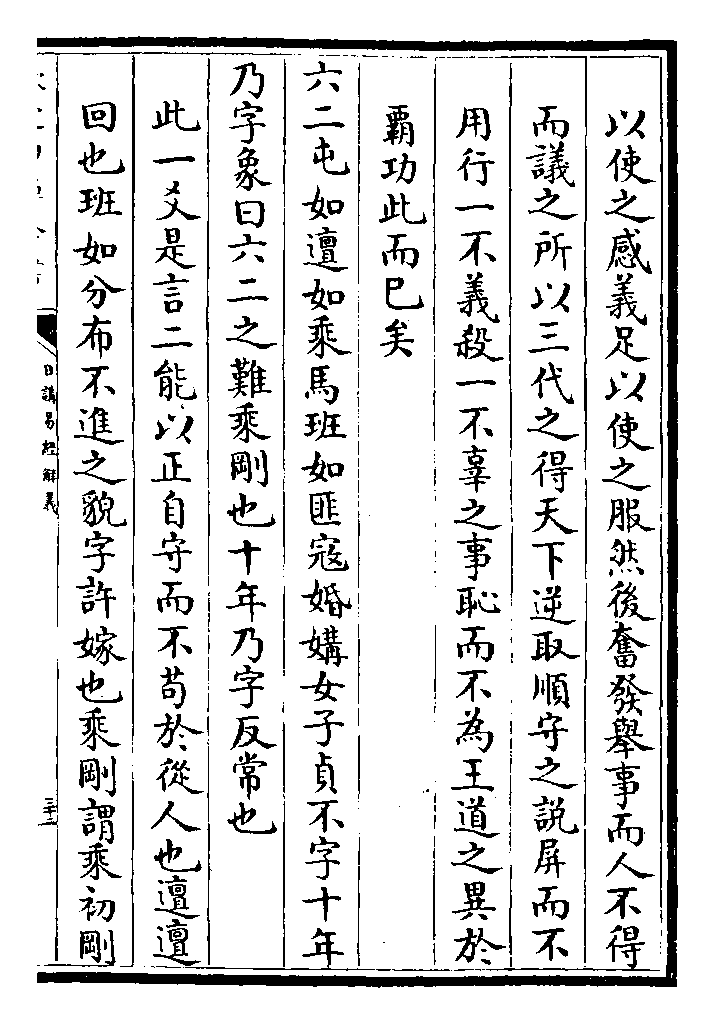 以使之感義足以使之服然後奮發舉事而人不得
而議之所以三代之得天下逆取順守之説屏而不
用行一不義殺一不辜之事恥而不為王道之異於
霸功此而已矣
六二屯如邅如乘馬班如匪寇婚媾女子貞不字十年
乃字象曰六二之難乘剛也十年乃字反常也
此一爻是言二能以正自守而不苟於從人也邅邅
回也班如分布不進之貌字許嫁也乘剛謂乘初剛
日講易經解義